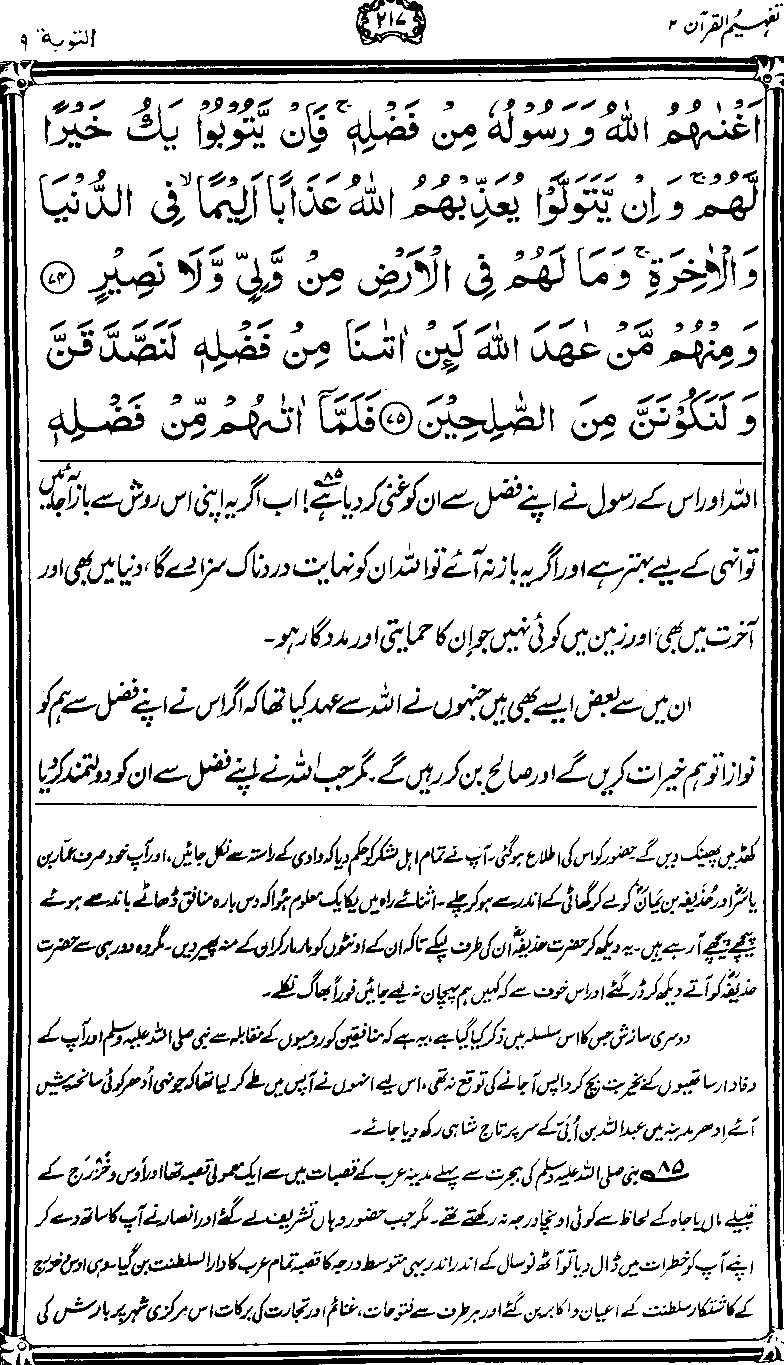 تفہیم القرآن ۲
۲۱۷
التوبۃ ۹
اَغْنٰىهُمُ اللّٰهُ وَرَسُوْلُهٗ مِنْ فَضْلِهٖ ۚ فَاِنْ يَّتُوْبُوْا يَكُ خَيْرًا
لَّهُمْ ۚ وَاِنْ يَّتَوَلَّوْا يُعَذِّبْهُمُ اللّٰهُ عَذَابًا اَلِيْمًا ۙ فِى الدُّنْيَا
وَالْاٰخِرَةِ ۚ وَمَا لَهُمْ فِى الْاَرْضِ مِنْ وَّلِيٍّ وَّلَا نَصِيْرٍ ﴿۷۴﴾
وَمِنْهُمْ مَّنْ عٰهَدَ اللّٰهَ لَئِنْ اٰتٰىنَا مِنْ فَضْلِهٖ لَنَصَّدَّقَنَّ
وَلَنَكُوْنَنَّ مِنَ الصّٰلِحِيْنَ ﴿۷۵﴾ فَلَمَّاۤ اٰتٰىهُمْ مِّنْ فَضْلِهٖ
اللہ اور اس کے رسول نے اپنے فضل سے ان کو غنی کر دیا ہے۸۵! اب اگر یہ اپنی اس روش سے باز آجائیں
تو انہی کے لیے بہتر ہے اور اگر یہ باز نہ آئے تو اللہ ان کو نہایت دردناک سزا دے گا، دنیا میں بھی اور
آخرت میں بھی، اور زمین میں کوئی نہیں جو ان کا حمایتی اور مددگار ہو۔
ان میں سے بعض ایسے بھی ہیں جنہوں نے اللہ سے عہد کیا تھا کہ اگر اس نے اپنے فضل سے ہم کو
نوازا تو ہم خیرات کریں گے اور صالح بن کر رہیں گے۔ مگر جب اللہ نے اپنے فضل سے ان کو دولتمند کر دیا
کھڈ میں پھینک دیں گے حضور کو اس کی اطلاع ہو گئی۔ آپ نے تمام اہل لشکر کو حکم دیا کہ وادی کے راستہ سے نکل جائیں، اور آپ خود صرف عمّار بن
یاسرؓ اور حُذَیفہ بن یمانؓ کو لے کر گھاٹی کے اندر سے ہو کر چلے۔ اثنائے راہ میں یکایک معلوم ہوا کہ دس بارہ منافق ڈھاٹے باندھے ہوئے
پیچھے پیچھے آ رہے ہیں۔ یہ دیکھ کر حضرت حذیفہؓ ان کی طرف لپکے تاکہ ان کے اونٹوں کو مار مار کر ان کے منہ پھیر دیں۔ مگر وہ دور ہی سے حضرت
حذیفہؓ کو آتے دیکھ کر ڈر گئے اور اس خوف سے کہ کہیں ہم پہچان نہ لیے جائیں فوراً بھاگ نکلے۔
دوسری سازش جس کا اس سلسلہ میں ذکر کیا گیا ہے، یہ ہے کہ منافقین کو رومیوں کے مقابلہ سے نبی صلی اللہ علیہ وسلم اور آپ کے
وفادار ساتھیوں کے بخیریت بچ کر واپس آجانے کی توقع نہ تھی، اس لیے انہوں نے آپس میں طے کر لیا تھا کہ جونہی اُدھر کوئی سانحہ پیش
آئے اِدھر مدینہ میں عبداللہ بن اُبَیّ کے سر پر تاج شاہی رکھ دیا جائے۔
۸۵ نبی صلی اللہ علیہ وسلم کی ہجرت سے پہلے مدینہ عرب کے قصبات میں سے ایک معمولی قصبہ تھا اور اَوس و خَزْرَج کے
قبیلے مال یا جاہ کے لحاظ سے کوئی اونچا درجہ نہ رکھتے تھے۔ مگر جب حضور وہاں تشریف لے گئے اور انصار نے آپ کا ساتھ دے کر
اپنے آپ کو خطرات میں ڈال دیا تو آٹھ نو سال کے اندر اندر یہی متوسط درجہ کا قصبہ تمام عرب کا دار السلطنت بن گیا۔ وہی اوس و خزرج
کے کاشتکار سلطنت کے اعیان و اکابر بن گئے اور ہر طرف سے فتوحات، غنائم اور تجارت کی برکات اس مرکزی شہر پر بارش کی